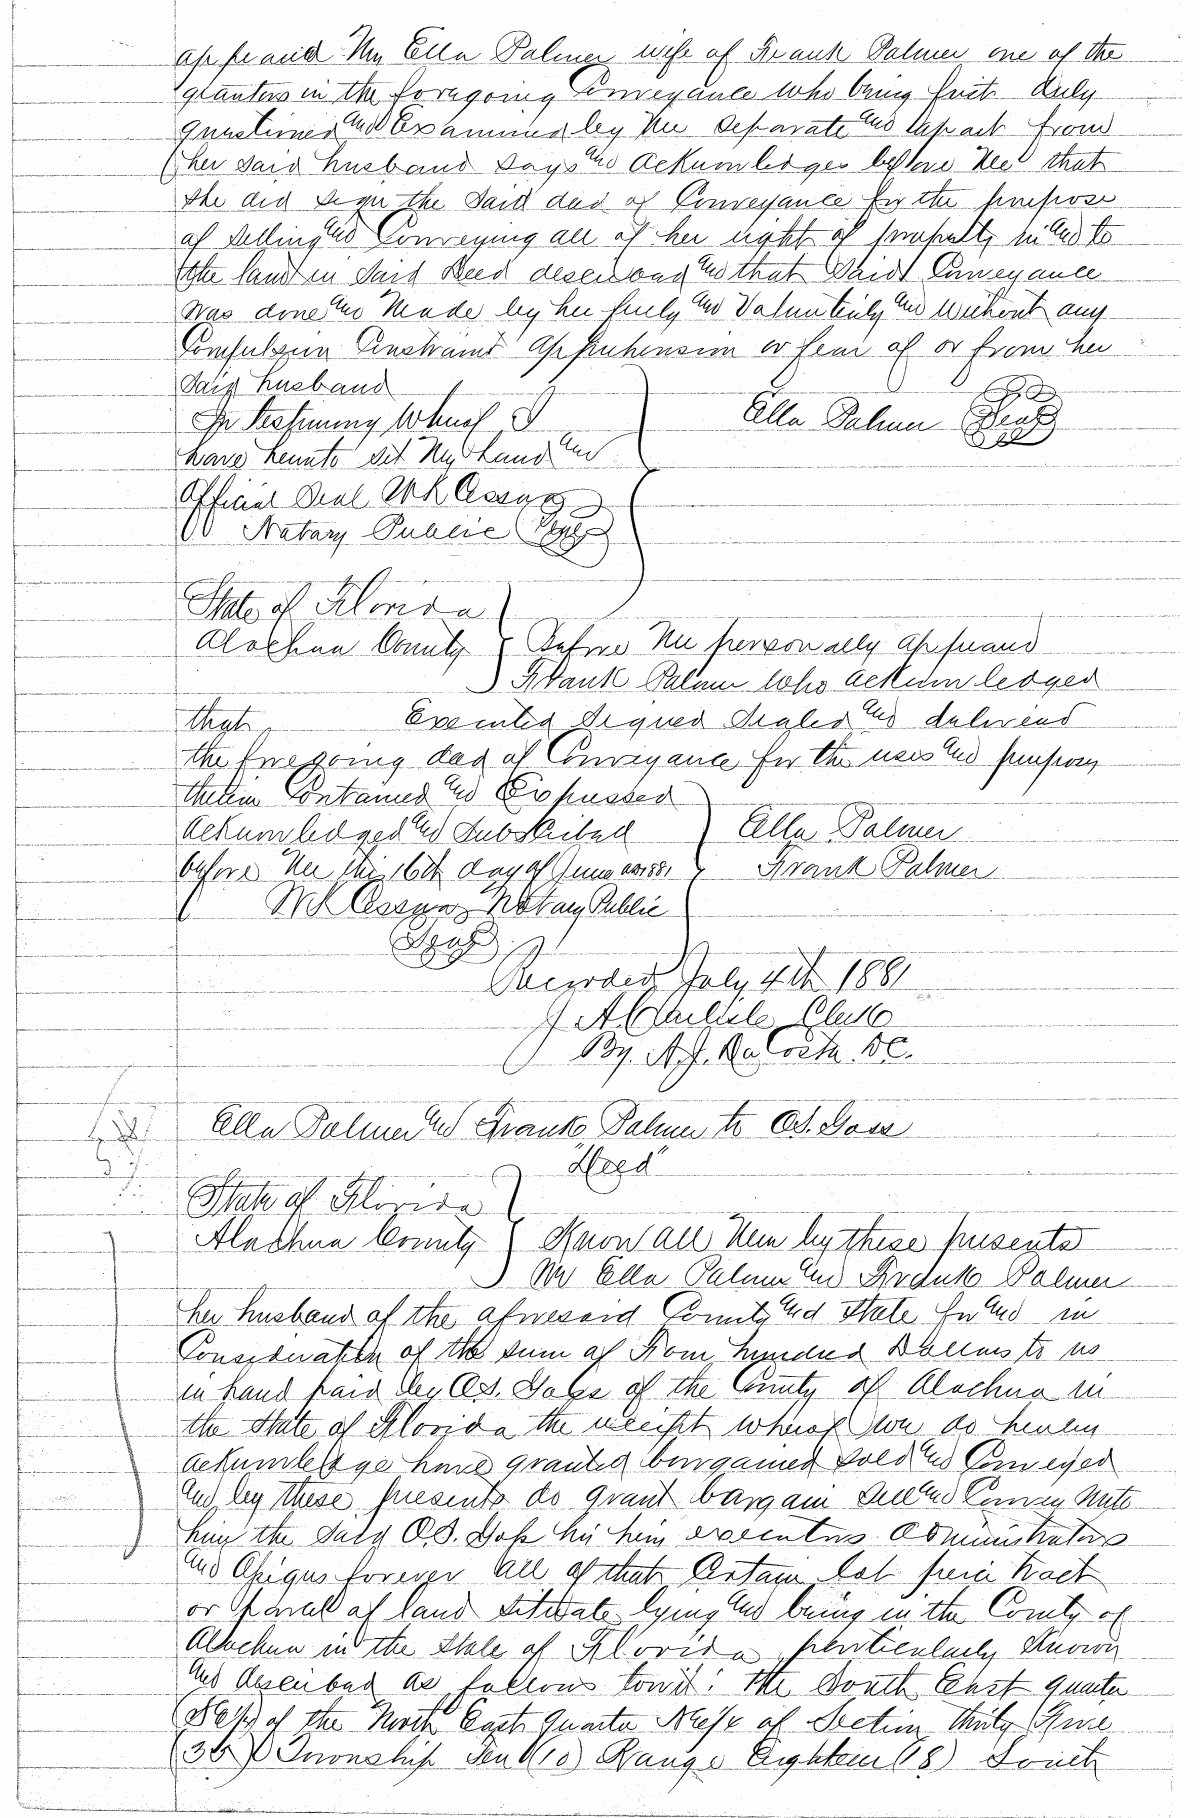 appeared Mrs Ella Palmer wife of Frank Palmer one of the
grantors in the foregoing Conveyance who being first duly
questioned and Examined by me separate and apart from
her said husband says and acknowledges before me that
she did sign the said deed of Conveyance for the purpose
of selling and Conveying all of her right of property in and to
the land in said Deed described and that said Conveyance
was done and made by her freely and Voluntarily and without any
Compulsion Constraint apprehension or fear of or from her
said husband
In testimony whereof I
have hereunto set my hand and
Official Seal WK Cessna
Notary Public Seal
Ella Palmer Seal
State of Florida
Alachua County Before me personally appeared
Frank Palmer who acknowledged
that Executed signed sealed and delivered
the foregoing deed of Conveyance for the uses and purposes
therein Contained and Expressed
acknowledged and subscribed
before me this 16th day of June AD 1881
WK Cessna Notary Public
Seal
Ella Palmer
Frank Palmer
Recorded July 4th 1881
J A Carlisle Clerk
By A.J. Da Costa D.C.
Ella Palmer and Frank Palmer to O.S. Goss
"Deed"
State of Florida
Alachua County Know all Men by these presents
We Ella Palmer and Frank Palmer
her husband of the aforesaid County and State for and in
Consideration of the sum of Four hundred Dollars to us
in hand paid by O.S. Goss of the County of Alachua in
the State of Florida the receipt whereof we do hereby
acknowledge have granted bargained sold and Conveyed
and by these presents do grant bargain sell and Convey unto
him the said O.S. Goss his heirs executors administrators
and Assigns forever all of that Certain lot piece tract
or parcel of land situate lying and being in the County of
Alachua in the State of Florida particularly known
and described as follows towit: the South East quarter
(SE1/4) of the North East quarter NE1/4 of Section thirty five
(35) Township Ten (10) Range Eighteen (18) South